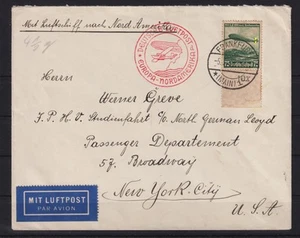 Mit Luftschiff nach Nord Amerika
DEUTSCHE LUFTPOST
EUROPA-NORDAMERIKA
FRANKFURT
(MAIN)
75
Herrn
Werner Greve
J. P. H. V. Studienfahrt c/o North German Lloyd
Passenger Departement
57 Broadway
New York-City
U. S. A
MIT LUFTPOST
PAR AVION